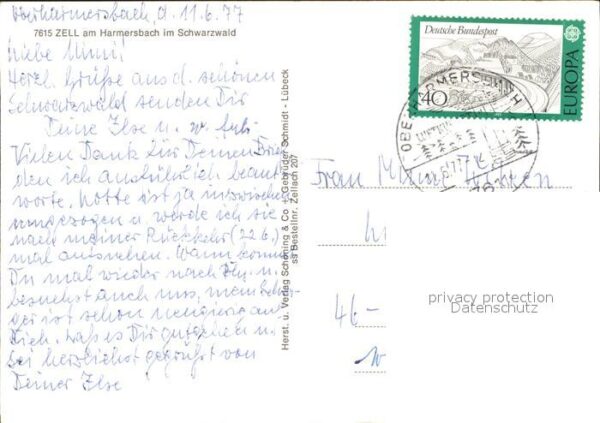 Oberharmersbach, d. 11.6.77
7615 ZELL am Harmersbach im Schwarzwald
Liebe Minni!
Herzl. Grüße aus d. schönen
Schwarzwald senden Dir
Deine Ilse u.
Vielen Dank für Deinen Brief
den ich ausführlich beant
worte. Lotte ist ja inzwischen
umgezogen u. werde ich sie
nach meiner Rückkehr (22.6.)
mal aufsuchen. Wann kommst
Du mal wieder nach u.
besuchst auch uns, mein
ger ist schon neugierig auf
Dich. Laß es Dir gutgehen u.
sei herzlichst gegrüßt von
Deiner Ilse
Herst. u. Verlag Schöning & Co + Gebrüder Schmidt - Lübeck
Bestellnr. Zellach 207
Deutsche Bundespost
40
EUROPA
OBERHARMERSBACH
Frau
46-
privacy protection
Datenschutz